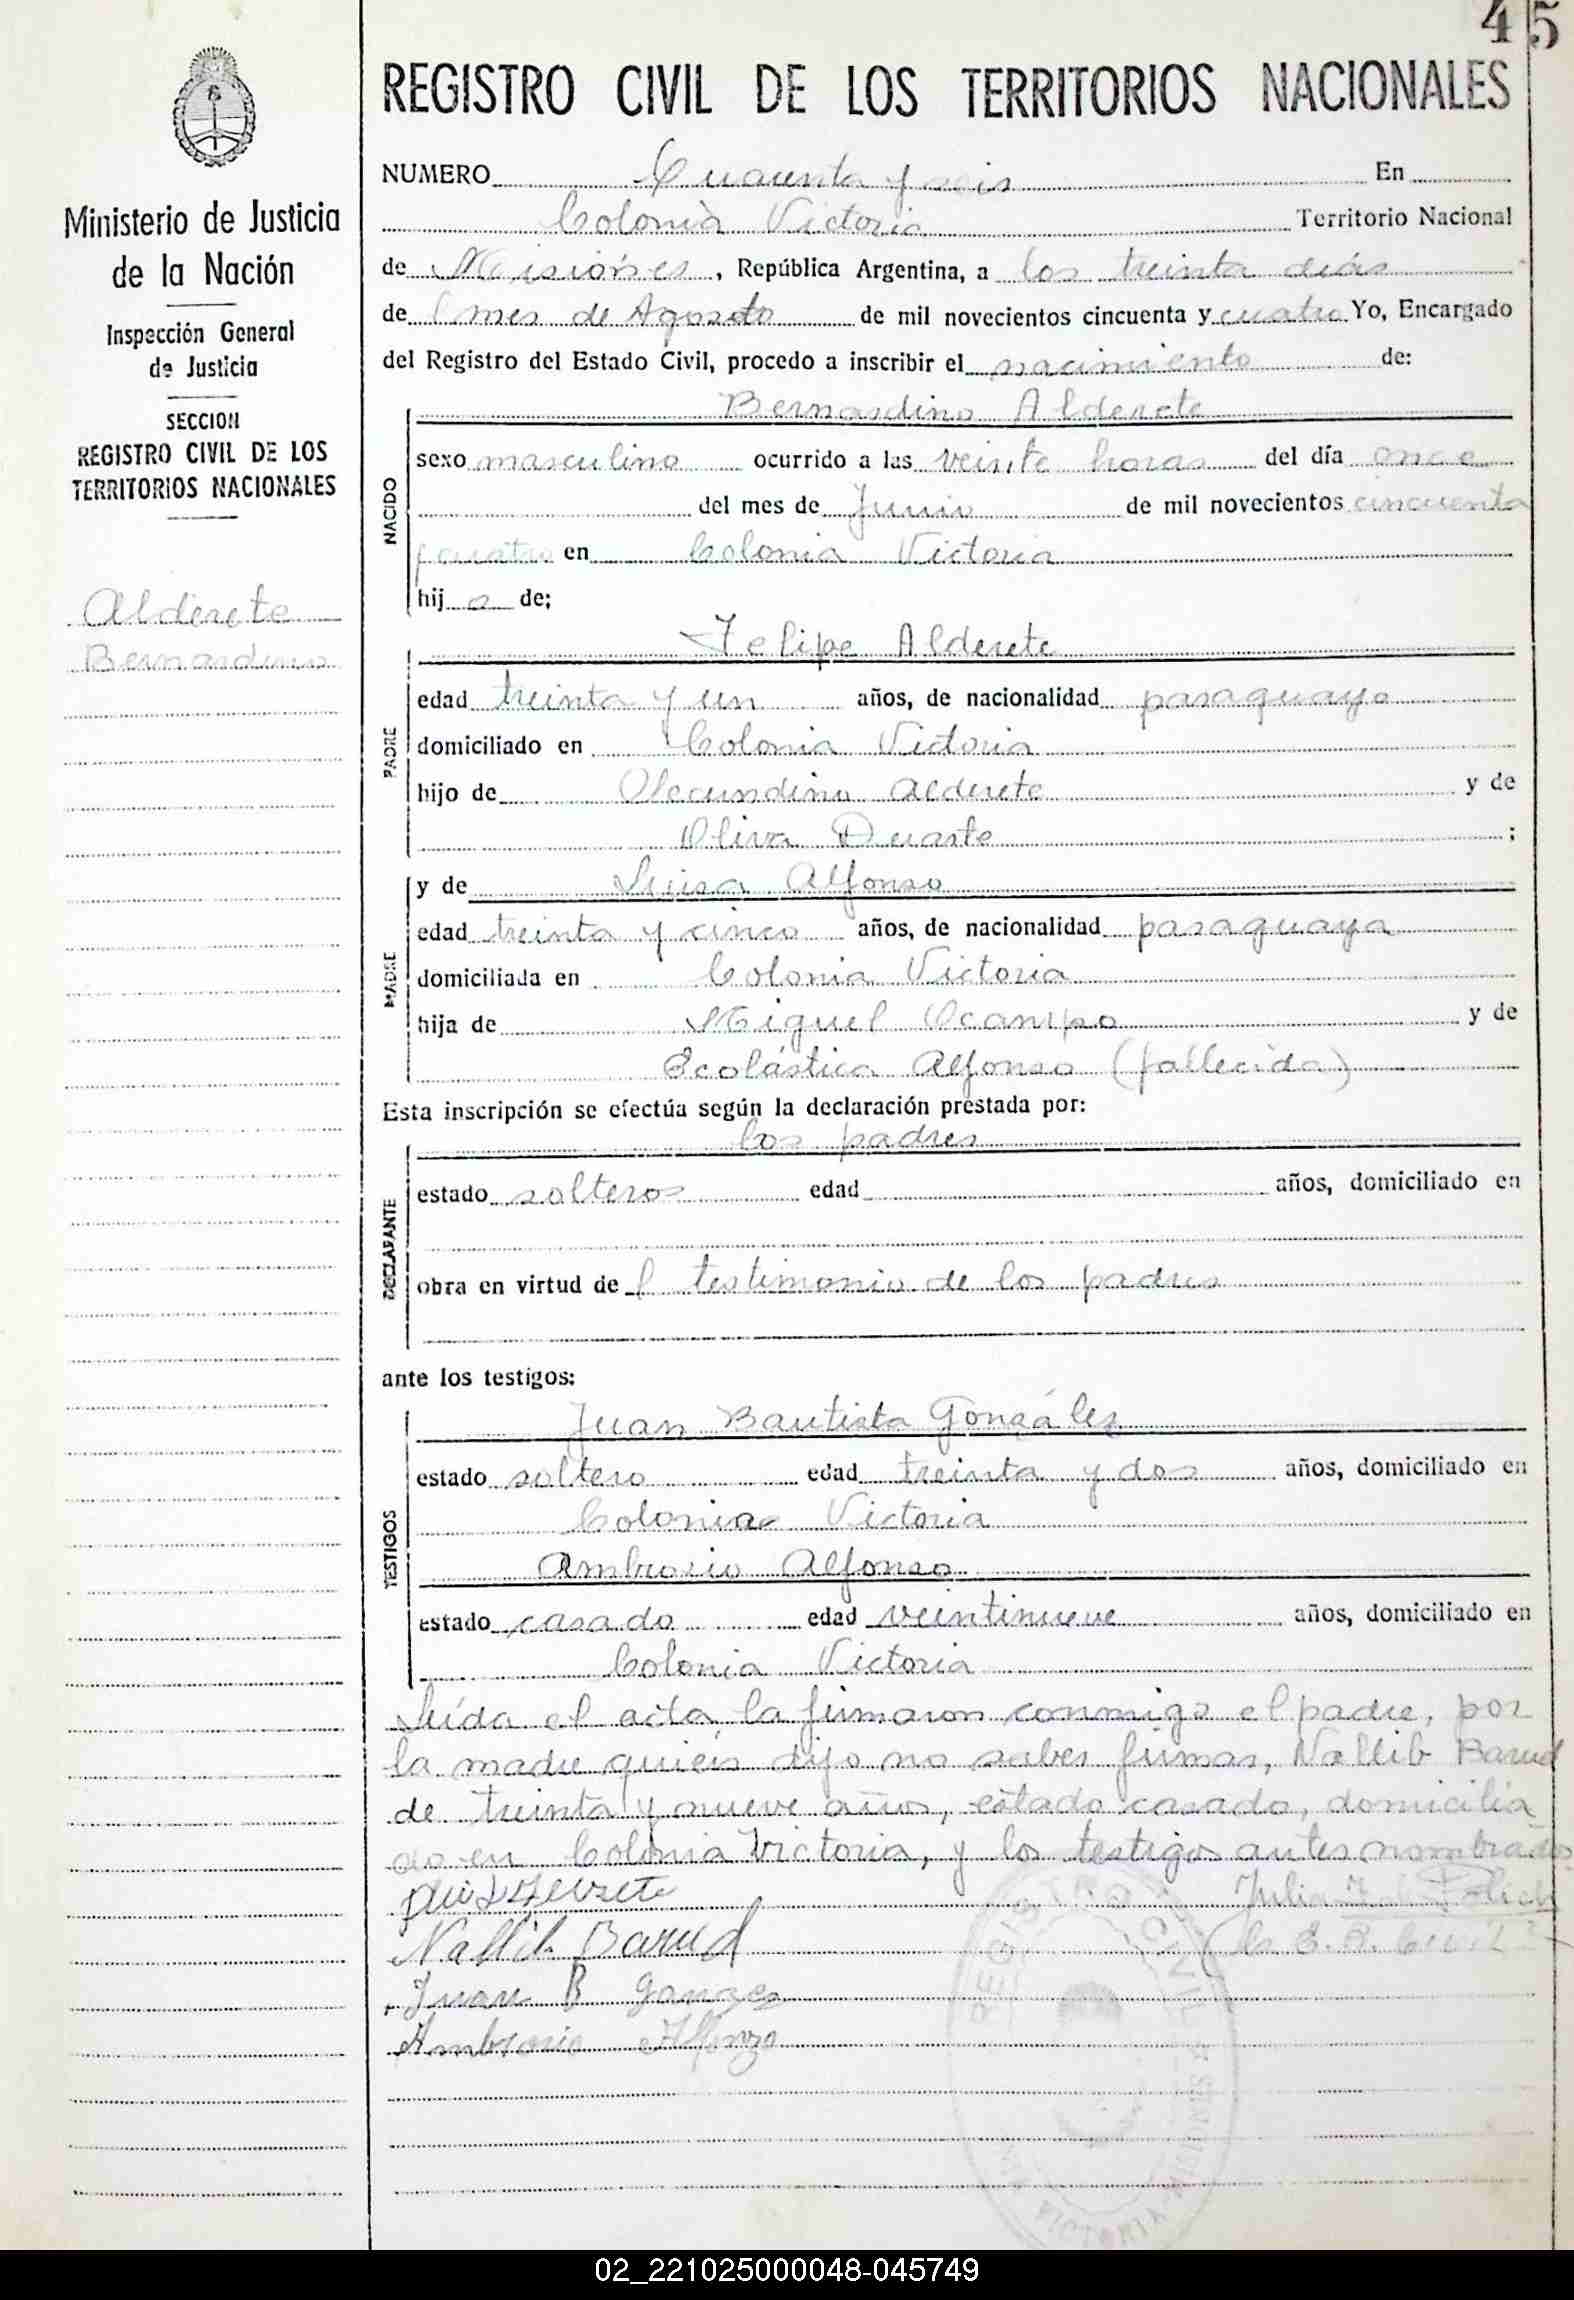 45
Ministerio de Justicia
de la Nación
Inspección General
de Justicia
SECCION
REGISTRO CIVIL DE LOS
TERRITORIOS NACIONALES
Alderete
Bernardino
REGISTRO CIVIL DE LOS TERRITORIOS NACIONALES
NUMERO Cuarenta y seis En
Colonia Victoria Territorio Nacional
de Misiones, República Argentina, a los treinta días
del mes de Agosto de mil novecientos cincuenta y cuatro Yo, Encargado
del Registro del Estado Civil, procedo a inscribir el nacimiento de:
Bernardino Alderete
NACIDO
sexo masculino ocurrido a las veinte horas del día once
del mes de Junio de mil novecientos cincuenta
y cuatro en Colonia Victoria
hijo de;
Felipe Alderete
PADRE
edad treinta y un años, de nacionalidad paraguayo
domiciliado en Colonia Victoria
hijo de Secundino Alderete y de
Oliva Duarte;
MADRE
y de Luisa Alfonso
edad treinta y cinco años, de nacionalidad paraguaya
domiciliada en Colonia Victoria
hija de Miguel Ocampo y de
Escolástica Alfonso (fallecida)
Esta inscripción se efectúa según la declaración prestada por:
los padres
DECLARANTE
estado solteros edad años, domiciliado en
obra en virtud del testimonio de los padres
ante los testigos:
Juan Bautista González
TESTIGOS
estado soltero edad treinta y dos años, domiciliado en
Colonia Victoria
Ambrosio Alfonso
estado casado edad veintinueve años, domiciliado en
Colonia Victoria
Leída el acta la firmaron conmigo el padre, por
la madre quién dijo no saber firmar, Nallib Barud
de treinta y nueve años, estado casado, domicilia
do en Colonia Victoria, y los testigos antes nombrados
Nallib Barud
Juan B Gonzes
Ambrosio Alfonzo
Julia
REGISTRO CIVIL
VICTORIA - MISIONES
02_221025000048-045749